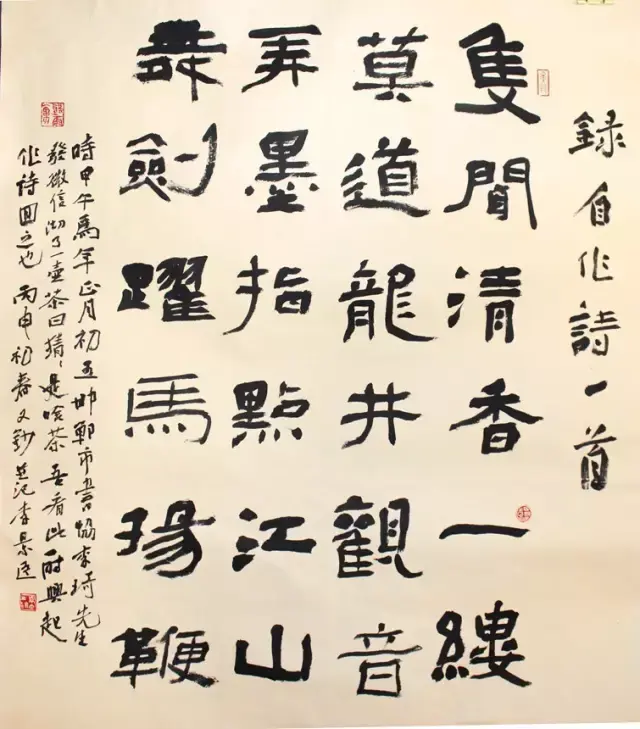 録自作詩一首
隻聞清香一縷
莫道龍井觀音
弄墨指點江山
舞劍躍馬揚鞭
時甲午馬年正月初五邯鄲市書協李琦先生
發微信沏了一壺茶曰猜〻是啥茶吾看此時興起
作詩回之也 丙申初春又鈔並記李景